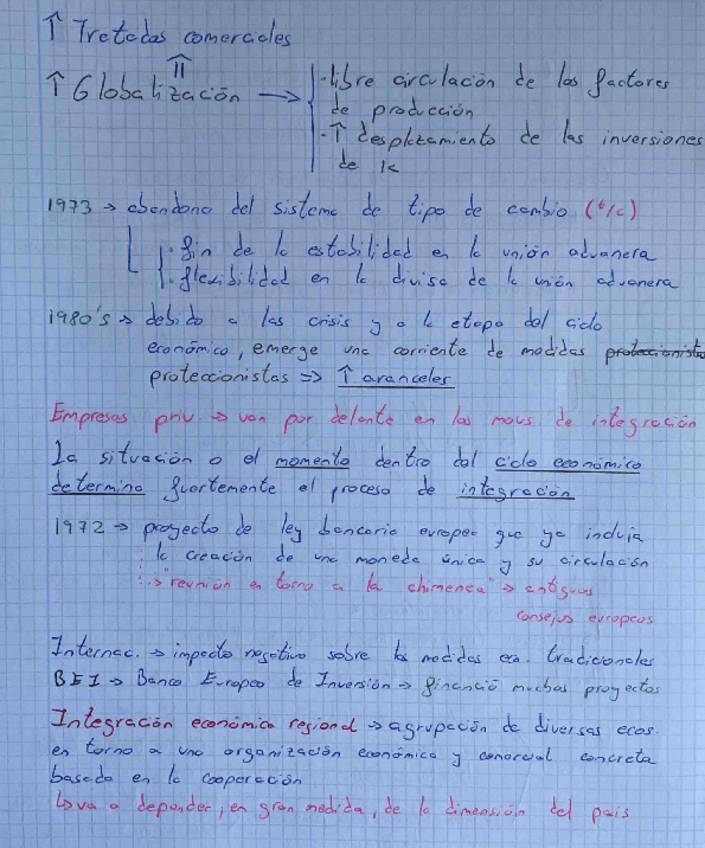 ↑ Tratados comerciales
⇑
↑ Globalización → - libre circulación de los factores
de producción
- ↑ desplazamiento de las inversiones
de k
1973 → abandono del sistema de tipo de cambio (t/c)
· fin de la estabilidad en la unión aduanera
· flexibilidad en la divisa de la unión aduanera
1980's → debido a las crisis y a la etapa del ciclo
económico, emerge una corriente de medidas proteccionista
proteccionistas => ↑ aranceles
Empresas priv. → van por delante en los movs. de integración
La situación o el momento dentro del ciclo económico
determina fuertemente el proceso de integración
1972 → proyecto de ley bancaria europea que ya incluía
la creación de una moneda única y su circulación
↳ "reunión en torno a la chimenea" → antiguos
consejos europeos
Internac. → impacto negativo sobre las medidas eco. tradicionales
BEI → Banco Europeo de Inversión → financió muchos proyectos
Integración económica regional → agrupación de diversas ecos.
en torno a una organización económica y comercial concreta
basada en la cooperación
↳ va a depender, en gran medida, de la dimensión del país